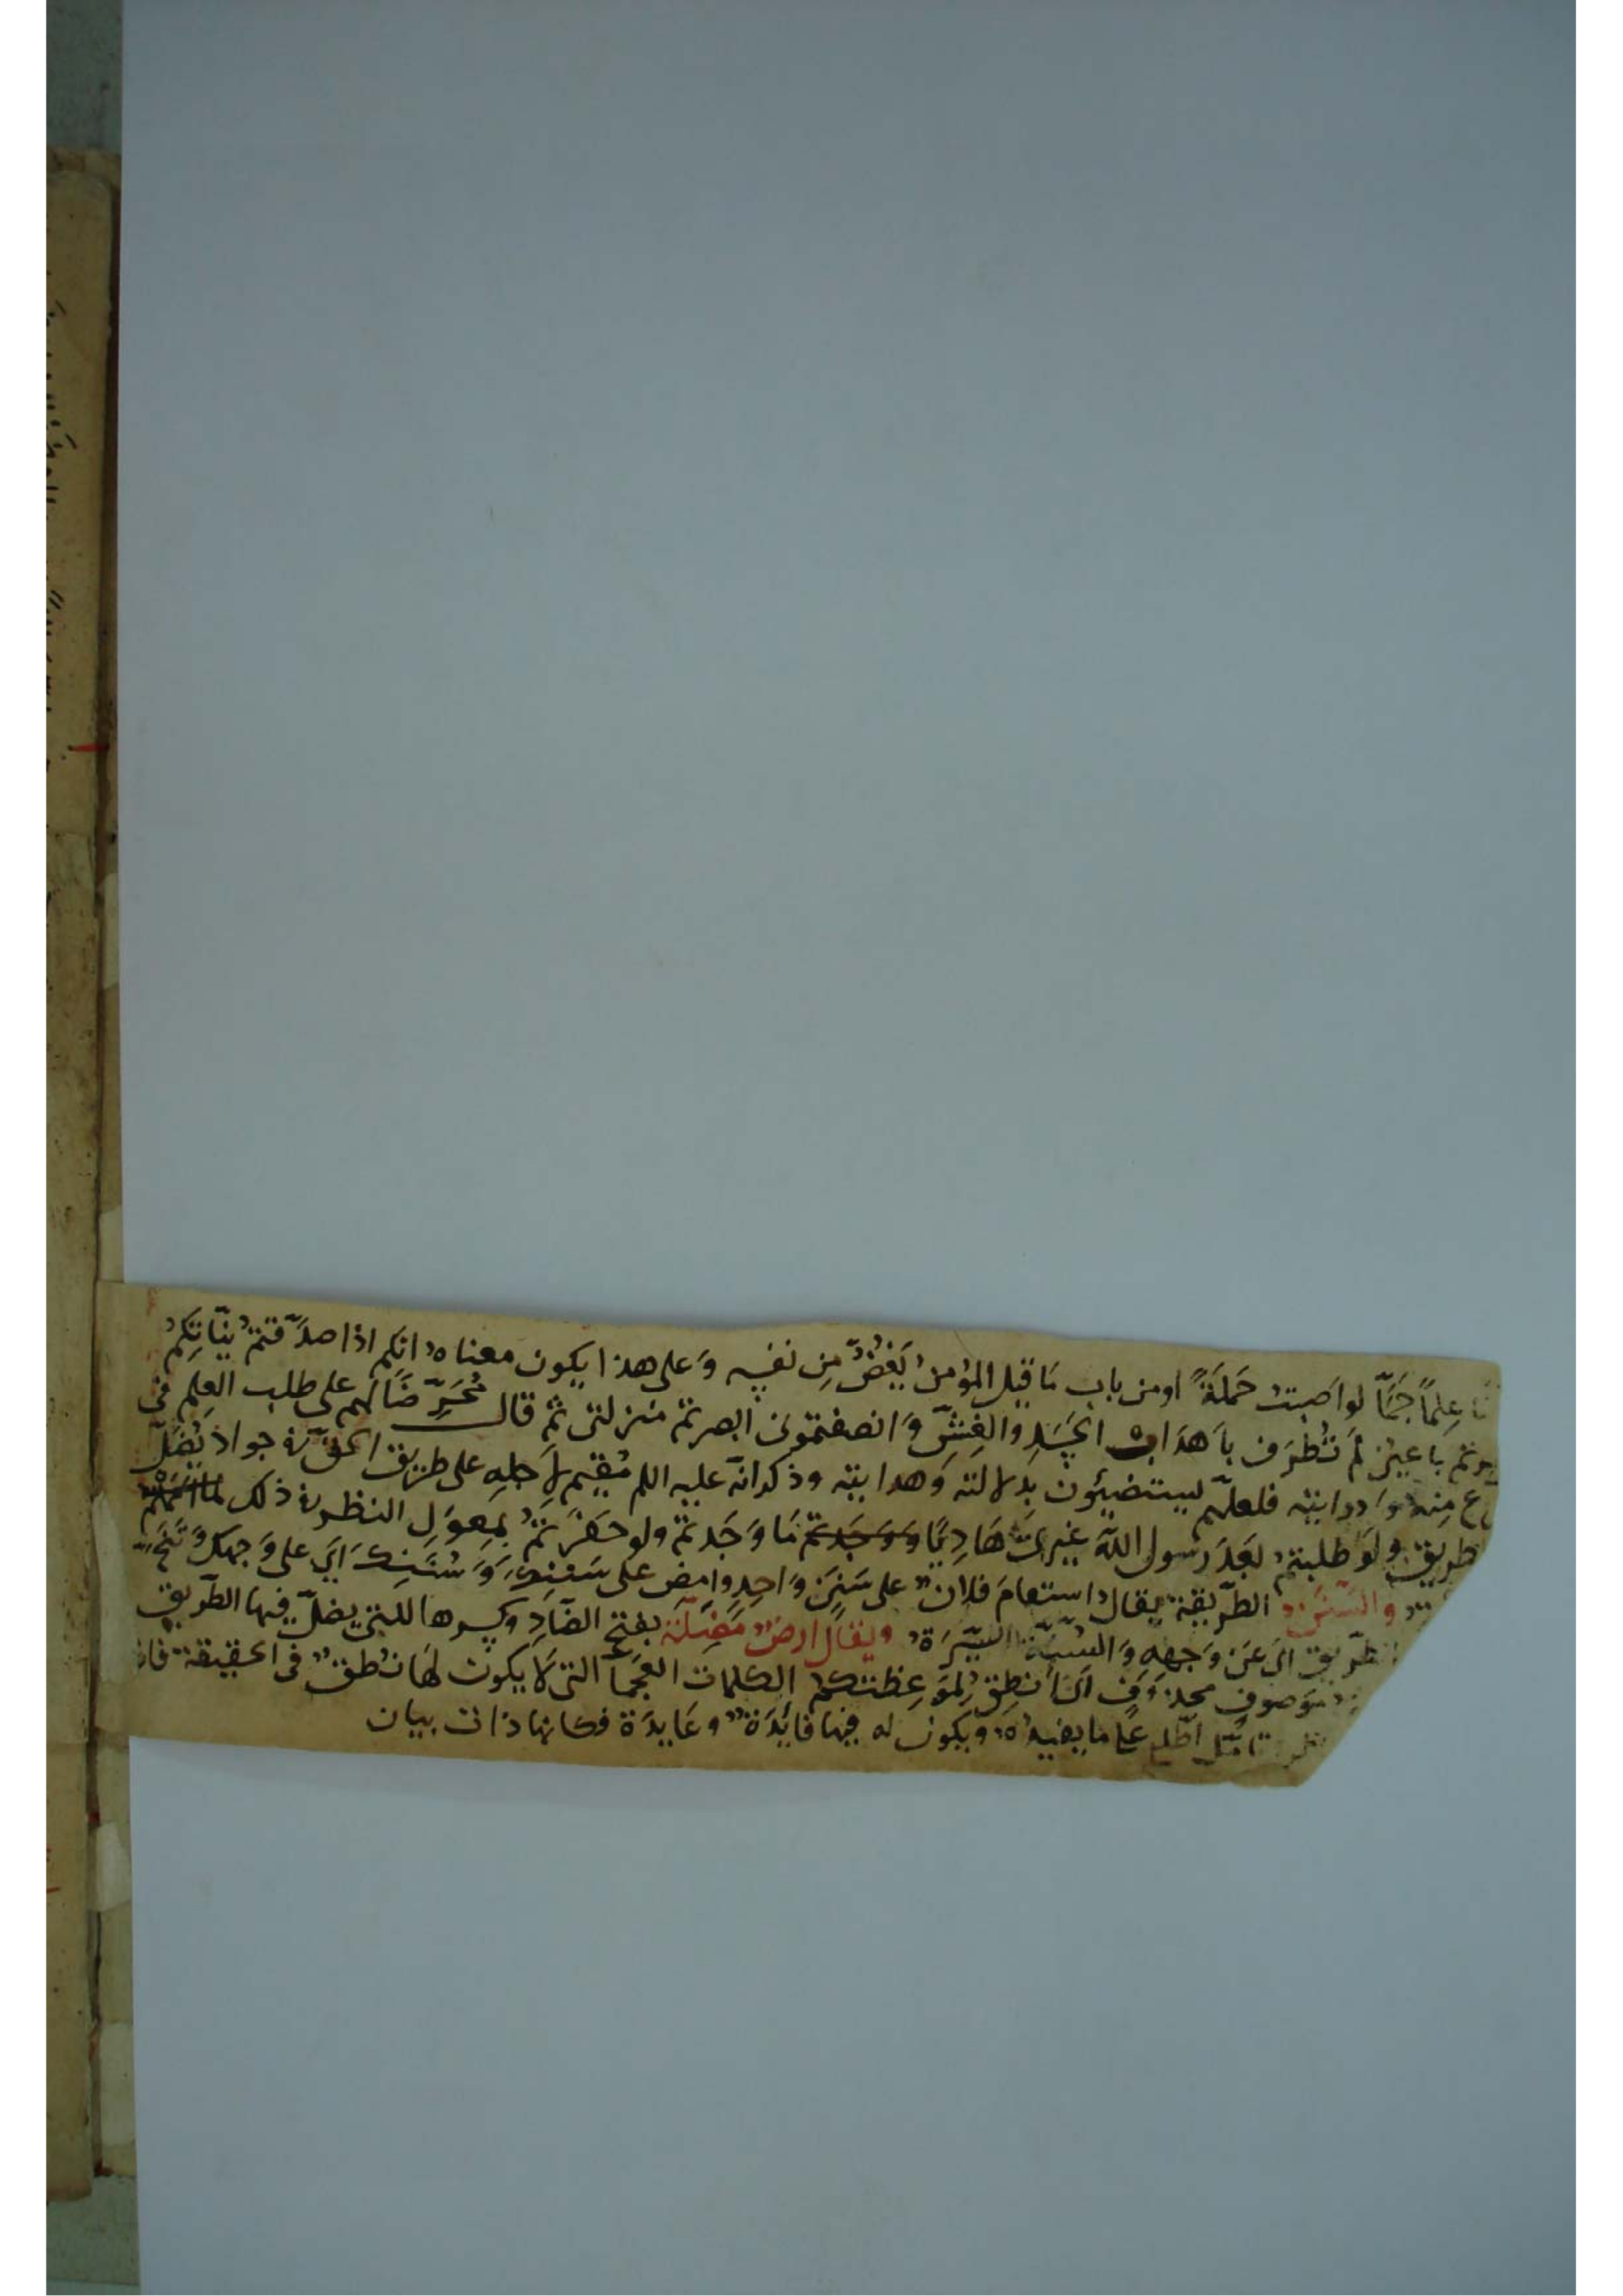 عِلماً جَمّاً لو اَصبتُ حَملَةً او من باب مَا قيل المؤمنُ يَغُضُّ مِن نفسِه وَ على هذا يكون معناه انكم اذا صدَّقتم نِيّاتِكم
باعين لم تُطرَف باَهدَاب الحَسَدِ والغِشّ وَ انصفتمونى ابصرتم منزلتى ثم قال مُحَرِّضَاً لهم على طلب العِلم فى
منه فلعلّهم ليستضيئون بدلالته وَهدايته وذكر انّه عليه السلم مُقيم لاَجلِهِ على طريق الحق فى جواد يُضَلّ
طريق ولَو طلبتم بَعدَ رسول الله غيرى هَادِيًا وَوَجَدتم مَا وَجَدتم ولو حَفَرتم بمِعوَل النظر فى ذلك لما
والسَّنَن الطّريقة يقال استقام فلانٌ على سَنَنٍ وَاحِدٍ وامضِ على سَنَنِكَ وَ سُنَنِكَ اَي على وَجهِكَ وَتَنَحَّ
الطّريق اى عَن وَجهه وَالسُّنّة السِّيَرة ويقال ارضٌ مَضِلّة بفتح الضّادِ وكسرها للتى يضلّ فيها الطّريق
موصوفٍ محذوفٍ اى اُنطِقُ لمَوعِظتكم الكلمات العجمآ التى لَا يكون لهَا نُطقٌ فى الحقيقة
تامّل اطّلع على ما يفيدُه ويكون له فيها فايدَةٌ وعَايدَة فكانها ذات بيان